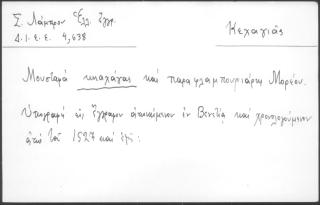 Σ. Λάμπρου Ἑλλ. Ἔγγρ.
Δ.Ι.Ε.Ε. 4,638
Κεχαγιᾶς
Μουσταφᾶ κιαχάγιας καὶ παραφλαμπουριάρης Μορέου.
Ὑπογραφὴ εἰς ἔγγραφον ἀποκείμενον ἐν Βενετίᾳ καὶ χρονολογούμενον
ἀπὸ τοῦ 1527 καὶ ἑξ: